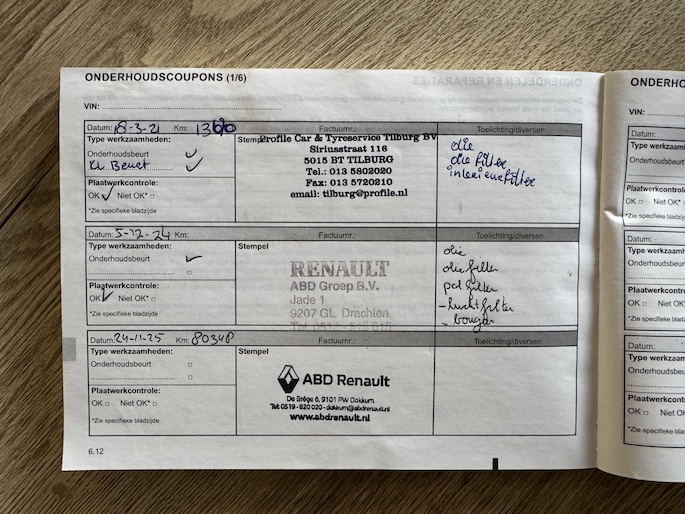 ONDERHOUDSCOUPONS (1/6)
VIN:
Datum: 18-3-21 Km: Factuurnr.: Toelichting/diversen
Type werkzaamheden:
Onderhoudsbeurt ✓
Kl Beurt ✓
Plaatwerkcontrole:
OK ✓ Niet OK* □
*Zie specifieke bladzijde
Stempel
Profile Car & Tyreservice Tilburg BV
Siriusstraat 116
5015 BT TILBURG
Tel.: 013 5802020
Fax: 013 5720210
email: tilburg@profile.nl
olie
olie filter
interieurfilter
Datum: 5-12-24 Km: Factuurnr.: Toelichting/diversen
Type werkzaamheden:
Onderhoudsbeurt ✓
□
Plaatwerkcontrole:
OK ✓ Niet OK* □
*Zie specifieke bladzijde
Stempel
RENAULT
ABD Groep B.V.
Jade 1
9207 GL Drachten
Tel.
olie
oliefilter
pol filter
- luchtfilter
- bougies
Datum: 24-11-25 Km: 80348 Factuurnr.: Toelichting/diversen
Type werkzaamheden:
Onderhoudsbeurt □
□
Plaatwerkcontrole:
OK □ Niet OK* □
*Zie specifieke bladzijde
Stempel
ABD Renault
De Brêge 6, 9101 PW Dokkum
Tel: 0519 - 820 020 - dokkum@abdrenault.nl
www.abdrenault.nl
6.12
ONDERHO
VIN:
Datum:
Type werkzaam
Onderhoudsbeu
Plaatwerkcont
OK □ Niet OK
*Zie specifieke bla
Datum:
Type werkzaam
Onderhoudsbeu
Plaatwerkcont
OK □ Niet O
*Zie specifieke bla
Datum:
Type werkzaa
Onderhoudsbe
Plaatwerkcon
OK □ Niet O
*Zie specifieke bl